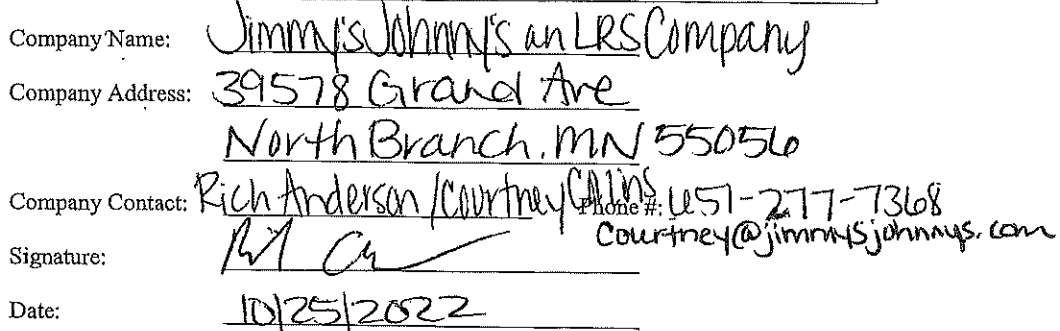 Company Name: Jimmy's Johnny's an LRS Company
Company Address: 39578 Grand Ave
North Branch, MN 55056
Company Contact: Rich Anderson / Courtney Collins Phone #: 651-277-7368
Courtney@jimmysjohnnys.com
Signature:
Date: 10/25/2022